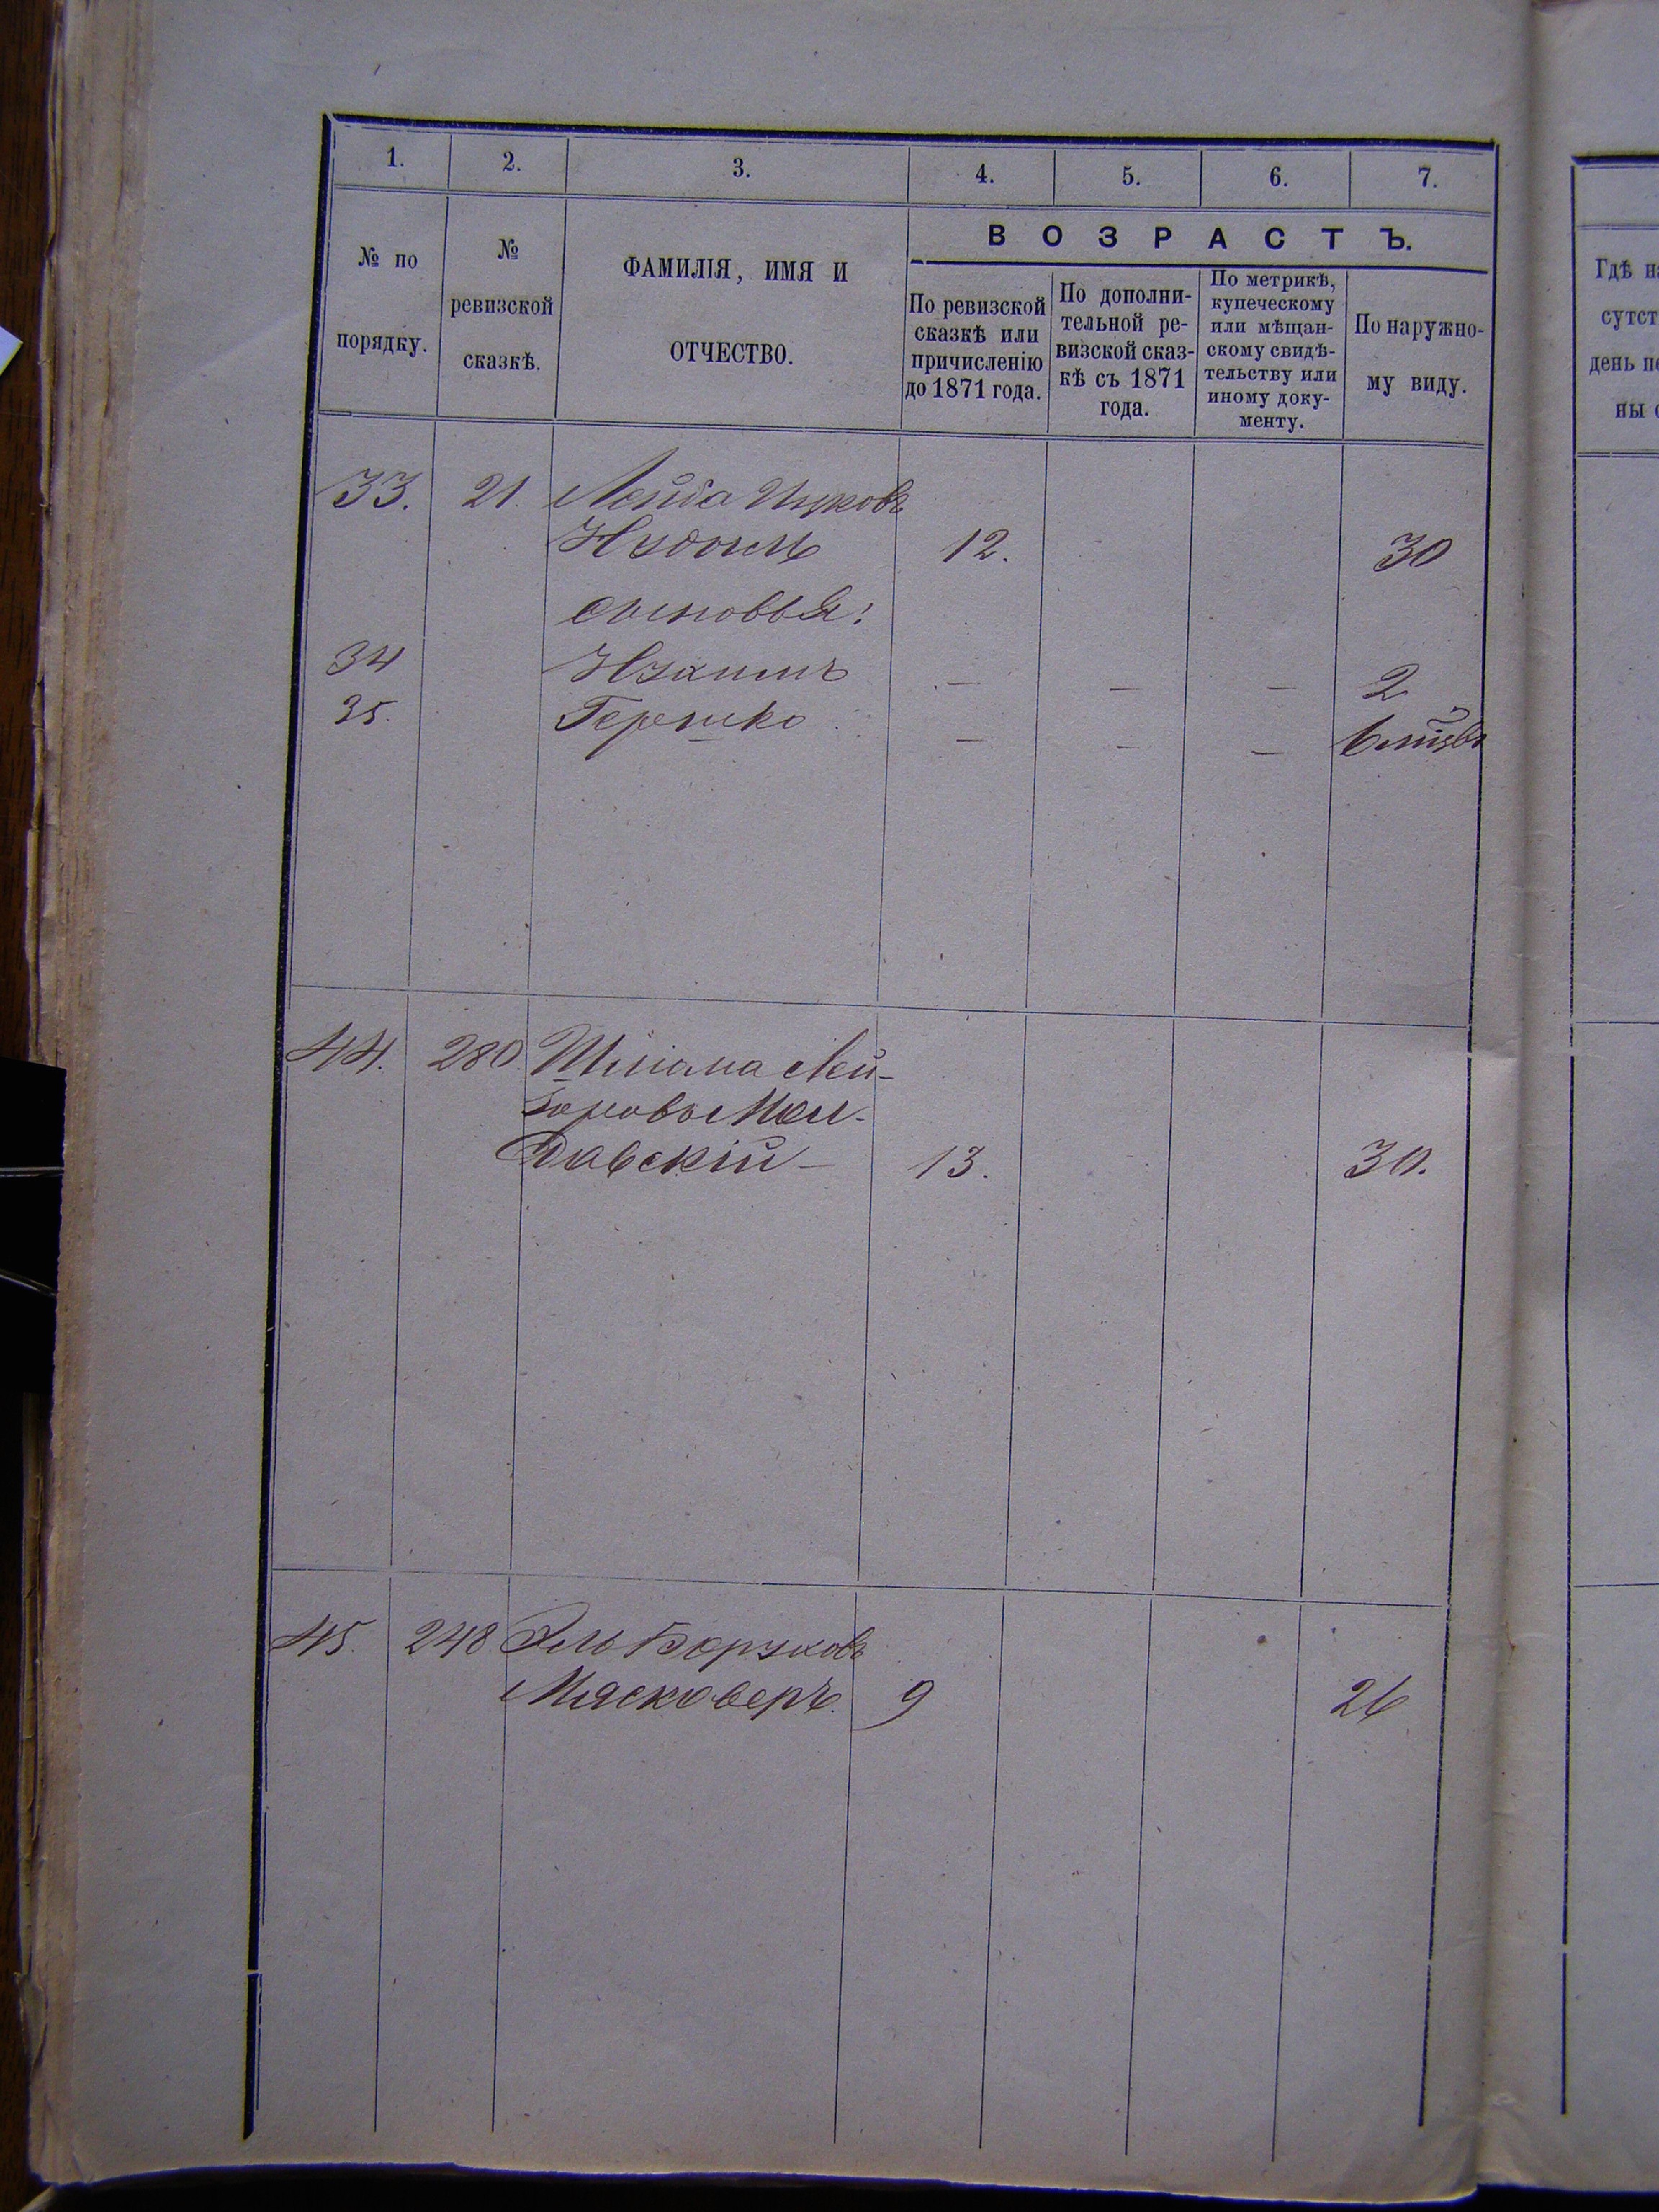 1. 2. 3. 4. 5. 6. 7.
№ по порядку.
№ ревизской сказкѣ.
ФАМИЛІЯ, ИМЯ И
ОТЧЕСТВО.
ВОЗРАСТЪ.
По ревизской
сказкѣ или
причисленію
до 1871 года.
По дополни-
тельной ре-
визской сказ-
кѣ съ 1871
года.
По метрикѣ,
купеческому
или мѣщан-
скому свидѣ-
тельству или
иному доку-
менту.
По наружно-
му виду.
33. 21. Лейба Ицковъ
12. 30
сыновья:
34 — — — 2
35. Гершко — — — 6 мѣсяц
44. 280. Шлiома Лей-
Мол-
давскій — 13. 30.
45. 248 Эль Боруховъ
Мясковеръ. 9 26
Гдѣ н
сутст
день п
ны